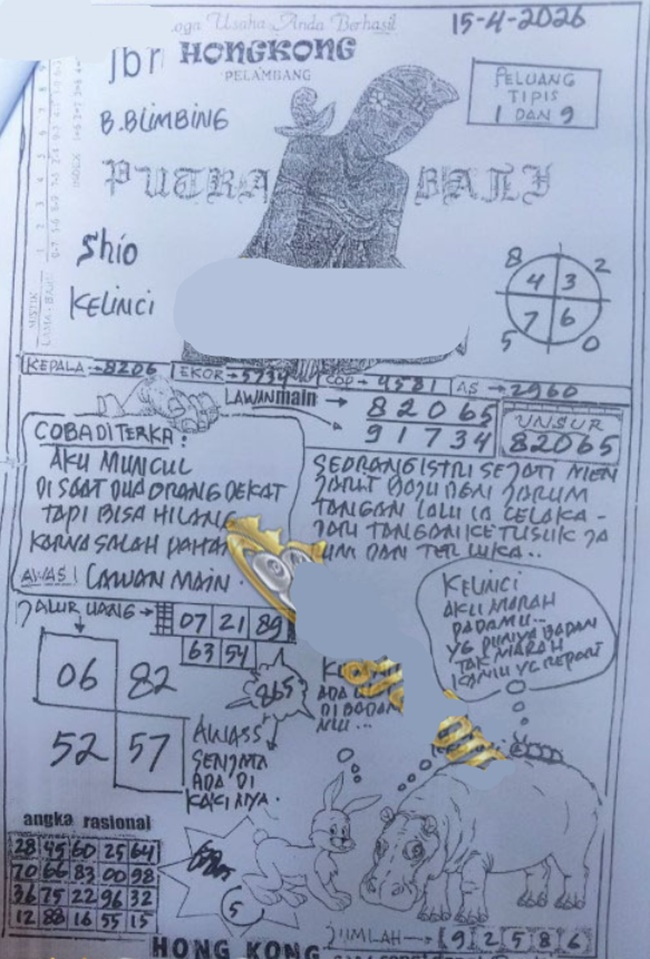 Usaha Anda Berhasil
15-4-2026
jbr HONGKONG
PELAMBANG
PELUANG
TIPIS
1 DAN 9
B.BLIMBING
PUTRA BALI
Shio
KELINCI
8 2
4 3
7 6
5 0
KEPALA → 8206 EKOR → 5734 COP → 4581 AS → 2960
LAWAN main →
82065
91734
UNSUR
82065
COBA DITERKA:
AKU MUNCUL
DI SAAT DUA ORANG DEKAT
TAPI BISA HILANG
KARNA SALAH PAHAM
AWAS! LAWAN MAIN.
SEORANG ISTRI SEJATI MEN
JARUM
TANGAN LALU IA CELAKA-
JARI TANGAN KETUSUK JA
RUM DAN TERLUKA..
JALUR UANG → 07 21 89
63 54
06 82
52 57
865
AWASS
SENJATA
ADA DI
KAKINYA.
ADA
DI BADAN
MU...
KELINCI
AKU MARAH
PADAMU...
YG PUNYA BADAN
TAK MARAH
KAMU YG REPOT
angka rasional
28 45 60 25 64
70 66 83 00 98
36 75 22 96 32
12 88 16 55 15
5
JUMLAH → 9 2 5 8 6
HONG KONG